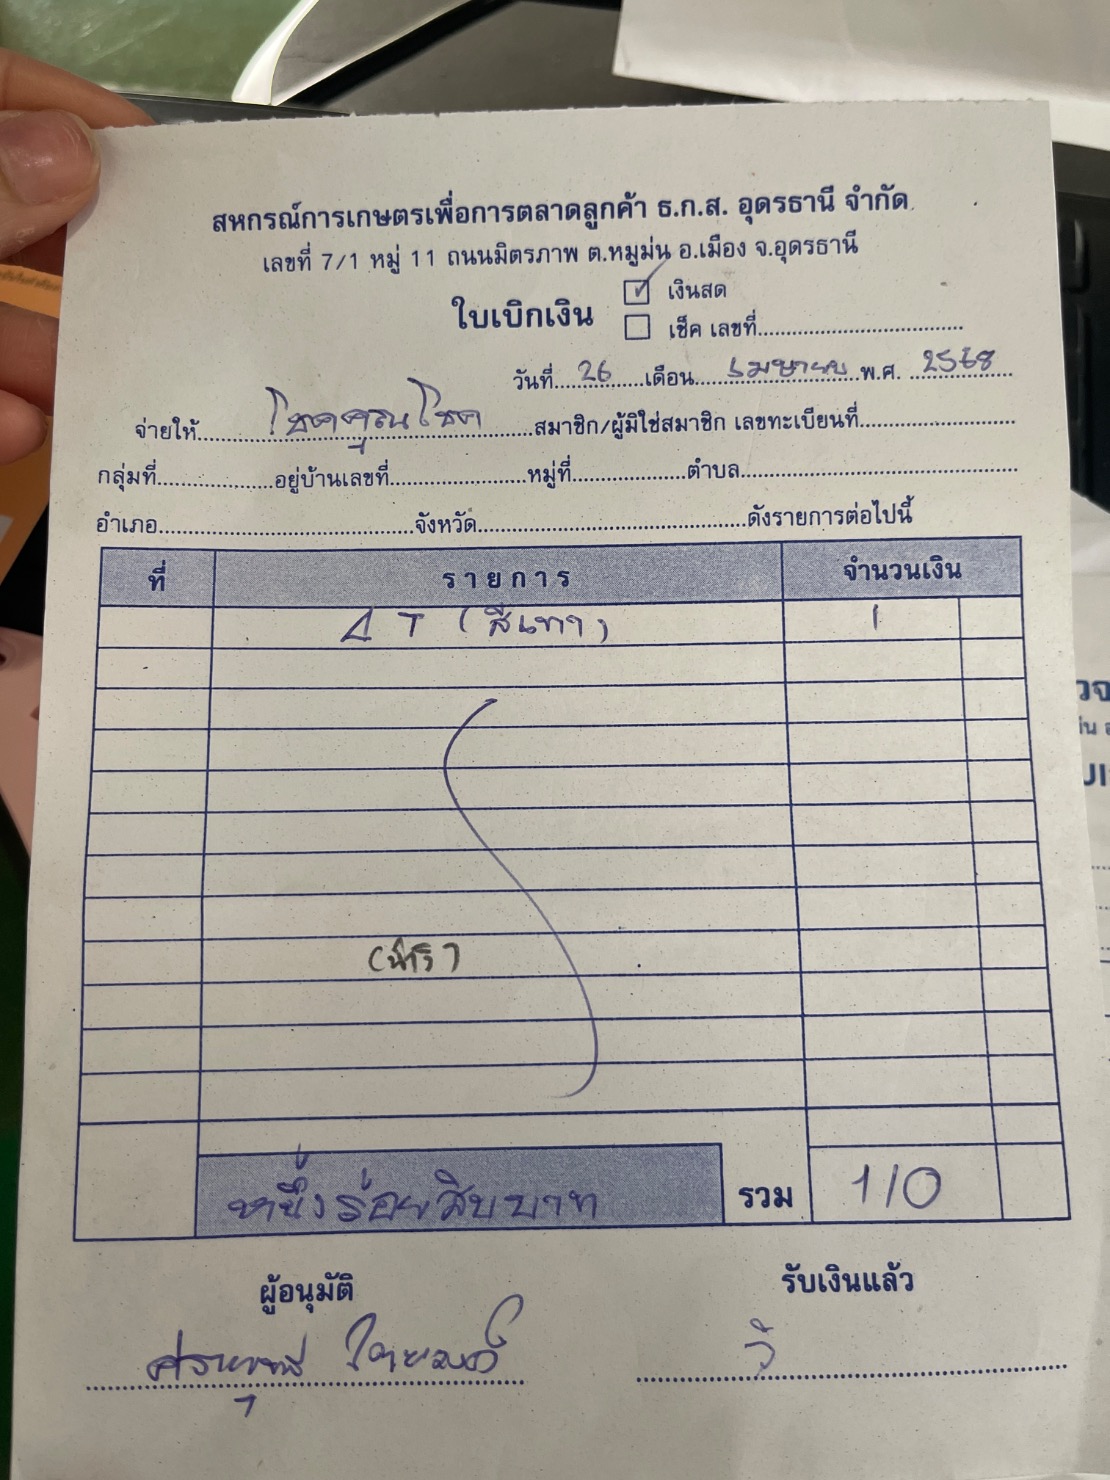 สหกรณ์การเกษตรเพื่อการตลาดลูกค้า ธ.ก.ส. อุดรธานี จำกัด
เลขที่ 7/1 หมู่ 11 ถนนมิตรภาพ ต.หมูม่น อ.เมือง จ.อุดรธานี
ใบเบิกเงิน ☑ เงินสด
☐ เช็ค เลขที่
วันที่ 26 เดือน เมษายน พ.ศ. 2568
จ่ายให้ โชคคูณโชค สมาชิก/ผู้มิใช่สมาชิก เลขทะเบียนที่
กลุ่มที่ อยู่บ้านเลขที่ หมู่ที่ ตำบล
อำเภอ จังหวัด ดังรายการต่อไปนี้
ที่ รายการ จำนวนเงิน
(สีเทา) 1
หนึ่งร้อยสิบบาท รวม 110
ผู้อนุมัติ รับเงินแล้ว